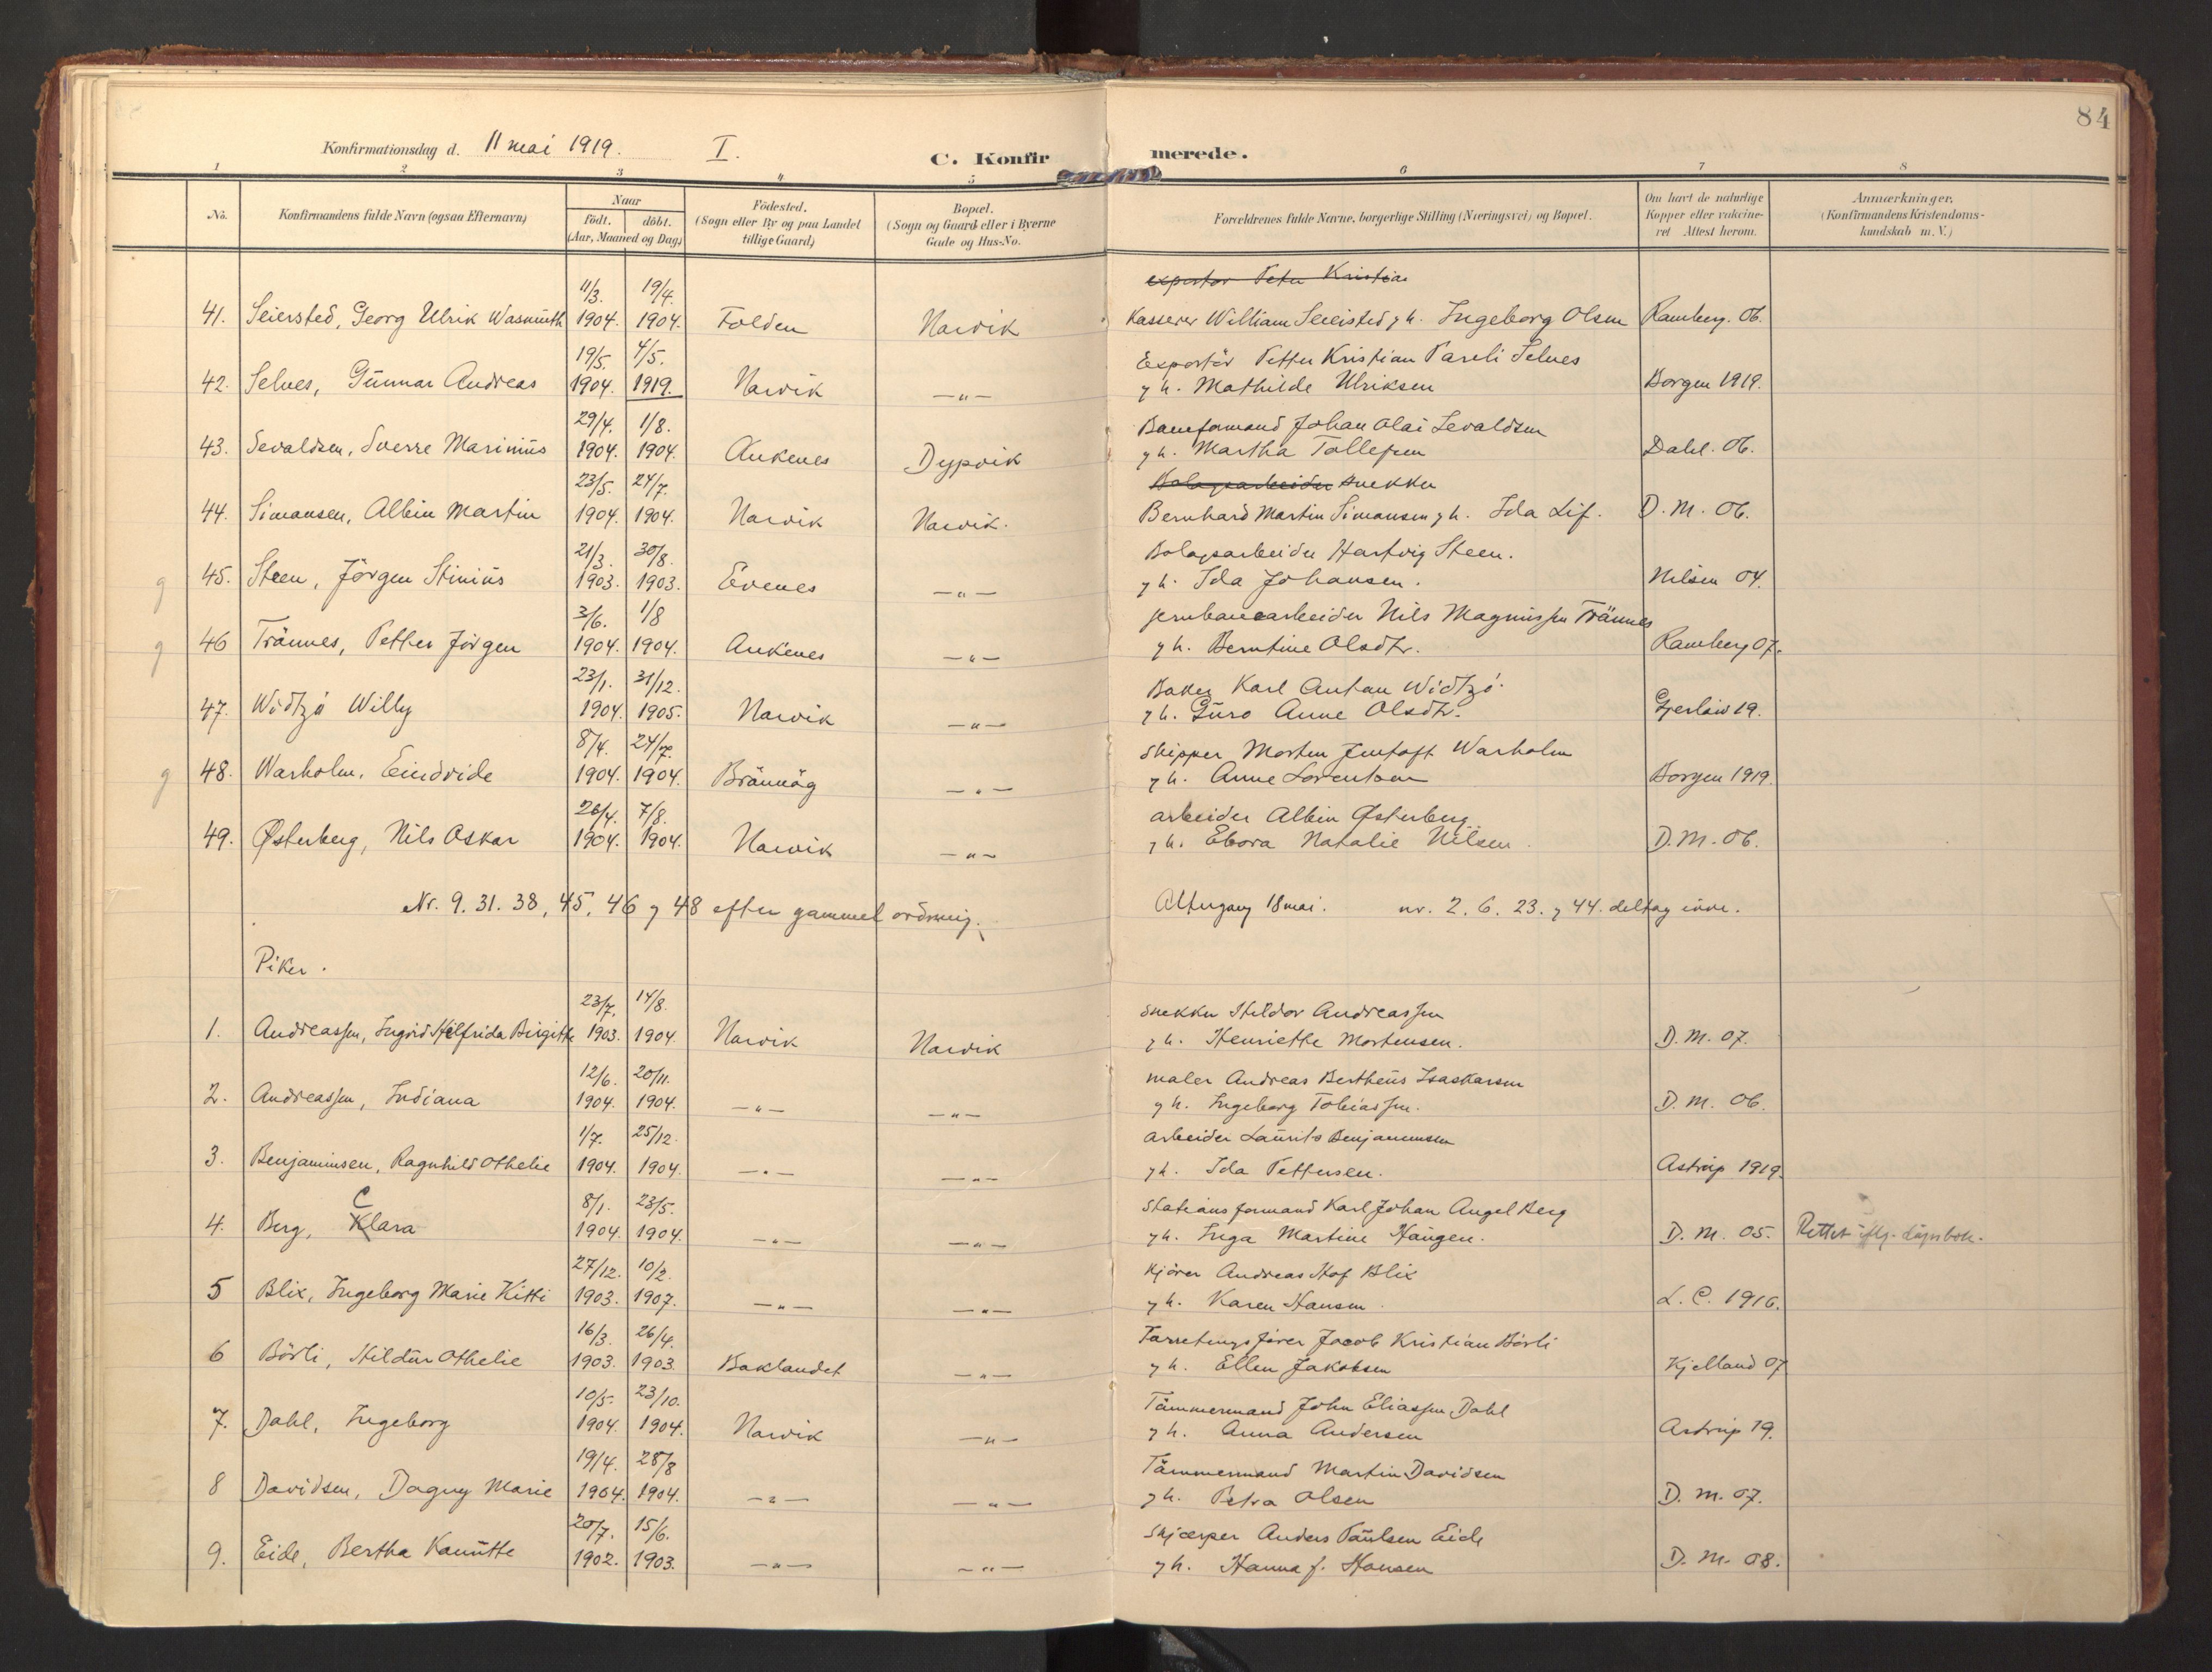 84
Konfirmationsdag d. 11 mai 1919. I. C. Konfirmerede.
1 2 3 4 5 6 7 8
No. Konfirmandens fulde Navn (ogsaa Efternavn) Naar födt. döbt. (Aar, Maaned og Dag) Födested. (Sogn eller By og paa Landet tillige Gaard) Bopæl. (Sogn og Gaard eller i Byerne Gade og Hus-No. Forældrenes fulde Navne, borgerlige Stilling (Næringsvei) og Bopæl. Om havt de naturlige Kopper eller vakcineret Attest herom. Anmærkninger. (Konfirmandens Kristendomskundskab m. V.)
11/3. 19/4. exportør Peter Kristian
41. Seiersted, Georg Ulrik Wasmuth 1904. 1904. Folden Narvik Kasserer William Seiersted g h. Ingeborg Olsen Ramberg. 06.
19/5. 4/5. Exportör Petter Kristian Pareli Selnes
42. Selnes, Gunnar Andreas 1904. 1919. Narvik —"— g h. Mathilde Ulriksen Borgen 1919.
29/4. 1/8. Baneformand Johan Olai Sevaldsen
43. Sevaldsen, Sverre Marinius 1904. 1904. Ankenes Dypvik g h. Martha Tollefsen Dahl. 06.
23/5. 24/7. Bolagsarbeider snekker
44. Simonsen, Albin Martin 1904. 1904. Narvik Narvik. Bernhard Martin Simonsen g h. Ida Lif. D. M. 06.
21/3. 30/8. Bolagsarbeider Hartvig Steen.
g 45. Steen, Jörgen Stinius 1903. 1903. Evenes —"— g h. Ida Johansen. Nilsen 04.
3/6. 1/8 jernbanearbeider Nils Magnussen Trännes
g 46 Trännes, Petter Jörgen 1904. 1904. Ankenes —"— g h. Berntine Olsdtr. Ramberg 07.
23/1. 31/12. Baker Karl Anton Wödtzö
47. Wödtzö Willy 1904. 1905. Narvik —"— g h. Guro Anne Olsdtr. Gjerlöw 19.
8/4. 24/7. Skipper Morten Jentoft Warholm
g 48. Warholm, Eindride 1904. 1904. Brännög —"— g h. Anne Lorentsen Borgen 1919.
26/4. 7/8. arbeider Albin Østerberg
49. Østerberg, Nils Oskar 1904. 1904. Narvik —"— g h. Ebora Natalie Nilsen. D. M. 06.
Nr. 9. 31. 38, 45, 46 g 48 efter gammel ordning. Altergang 18 mai. nr. 2. 6. 23. g 44. deltog ikke.
Piker.
23/7. 14/8. snekker Hildor Andreassen
1. Andreassen, Ingrid Helfrida Birgitte 1903. 1904. Narvik Narvik g h. Henriette Mortensen. D. M. 07.
12/6. 20/11. maler Andreas Bertheus Isaksen
2. Andreassen, Indiana 1904. 1904. —"— —"— g h. Ingeborg Tobiassen. D. M. 06.
1/7. 25/12. arbeider Laurits Benjaminsen
3. Benjaminsen, Ragnhild Othelie 1904. 1904. —"— —"— g h. Ida Pettersen. Astrup 1919.
C 8/1. 23/5. Stationsformand Karl Johan Angel Berg
4. Berg, Klara 1904. 1904. —"— —"— g h. Inga Martine Haugen. D. M. 05. Rettet iflg. dåpsbok.
27/12. 10/2. Kjörer Andreas Hof Blix
5 Blix, Ingeborg Marie Kitti 1903. 1907. —"— —"— g h. Karen Hansen. L. C. 1916.
16/3. 26/4. Forretningsförer Jacob Kristian Börli
6 Börli, Hildur Othelie 1903. 1903. Baklandet —"— g h. Ellen Jakobsen Kjelland 07
10/5. 23/10. Tömmermand John Eliassen Dahl
7. Dahl, Ingeborg 1904. 1904. Narvik —"— g h. Anna Andersen Astrup 19.
19/4. 28/8 Tömmermand Martin Davidsen
8 Davidsen, Dagny Marie 1904. 1904. —"— —"— g h. Petra Olsen D. M. 07.
20/7. 15/6. Skjærper Anders Paulsen Eide
9. Eide, Bertha Kanutte 1902. 1903. —"— —"— g h. Hanna f. Hansen D. M. 08.